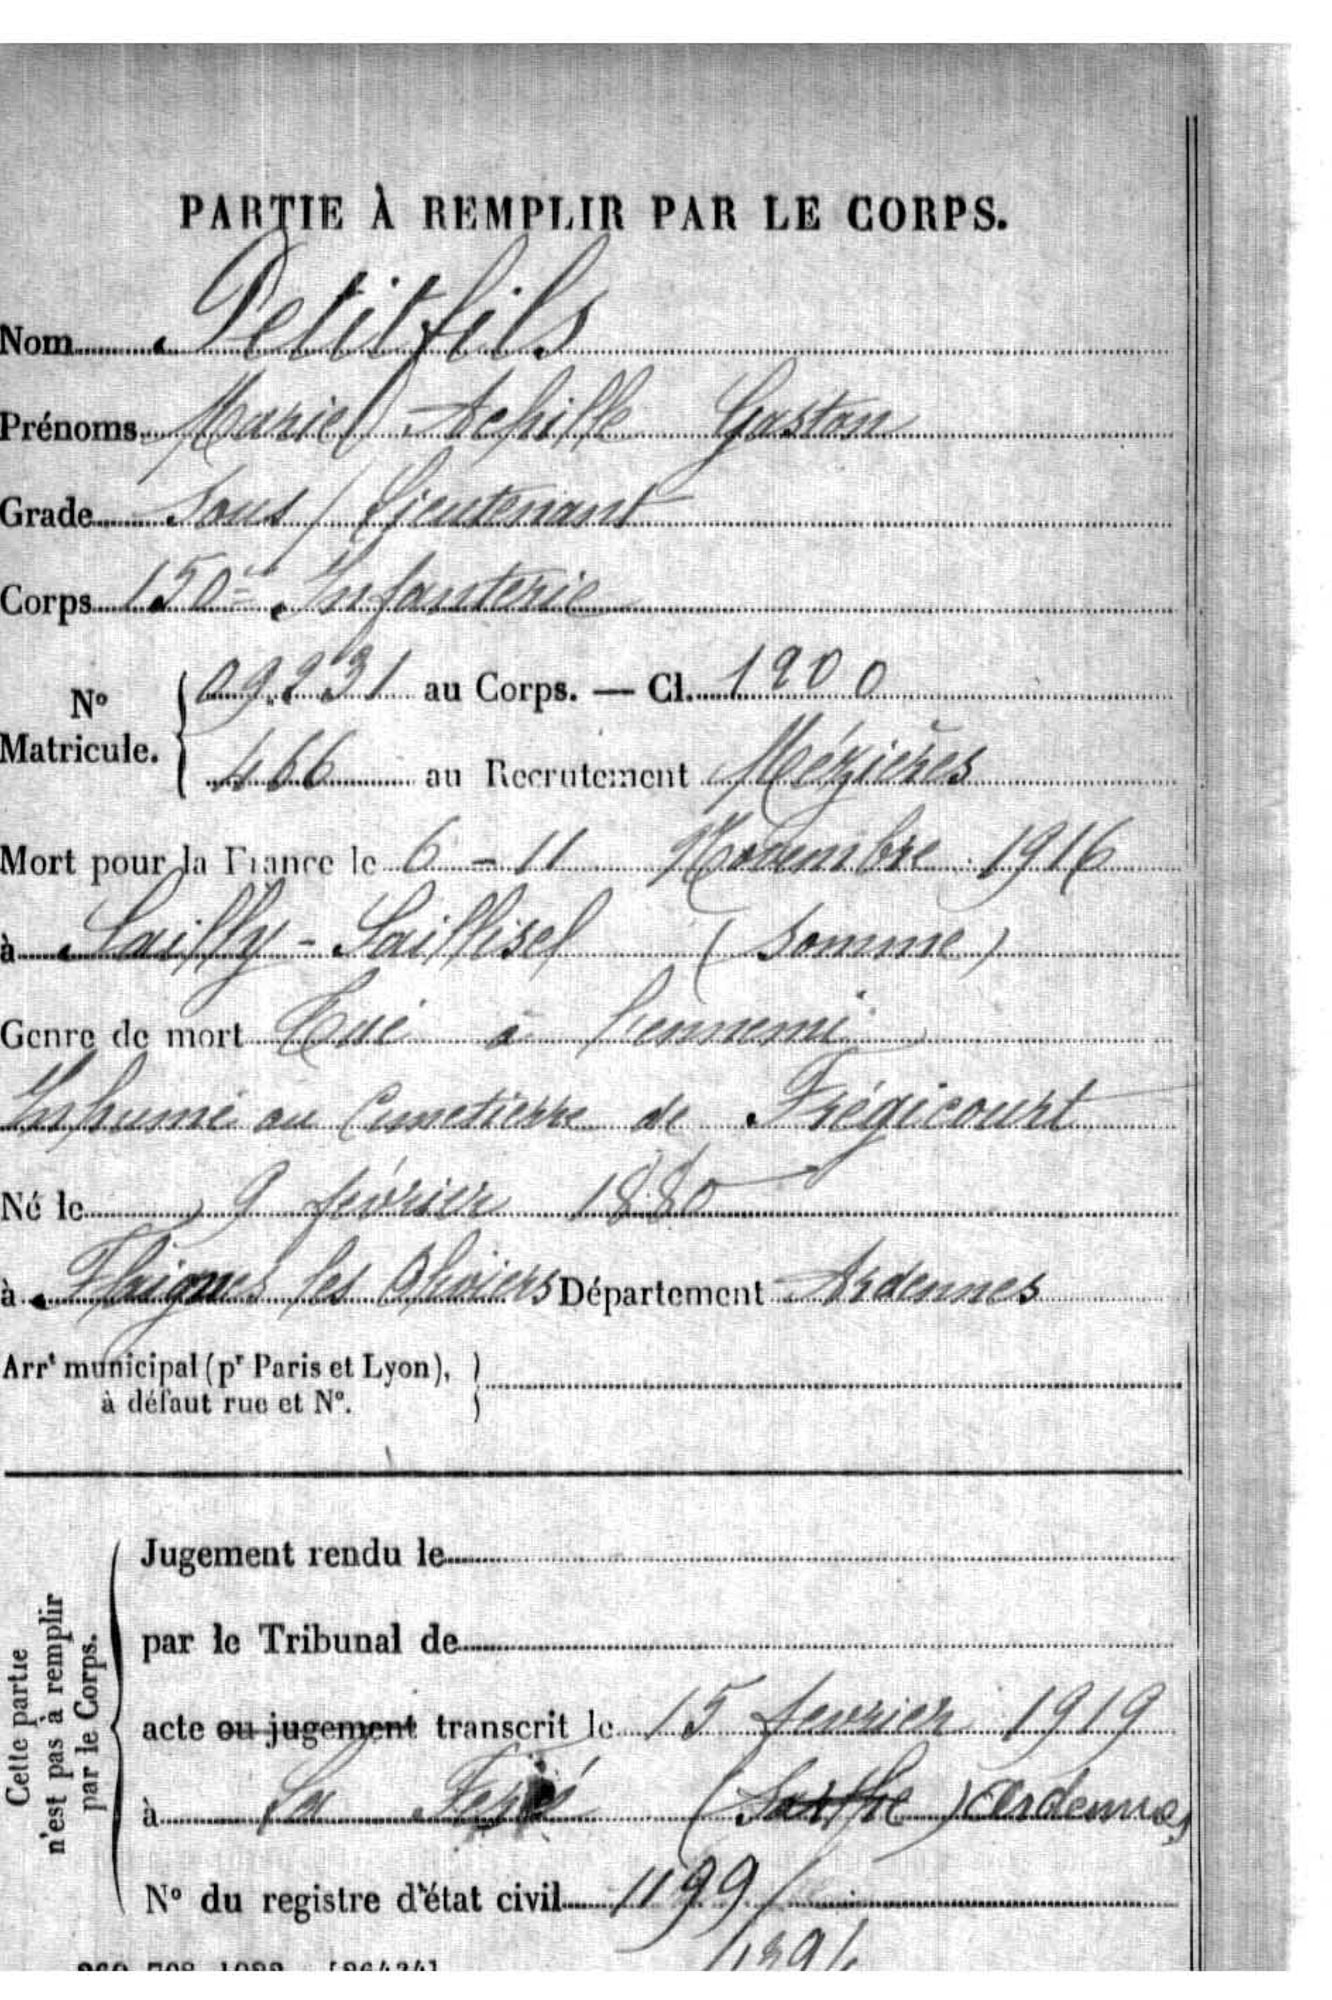 PARTIE À REMPLIR PAR LE CORPS.
Nom Petitfils
Prénoms Marie Achille Gaston
Grade Sous Lieutenant
Corps 150e Infanterie
No Matricule. 09231 au Corps. — Cl. 1900
466 au Recrutement Mézières
Mort pour la France le 6 - 11 Novembre 1916
à Sailly - Saillisel (Somme)
Genre de mort Tué à l'ennemi
Inhumé au Cimetierre de Frégicourt
Né le 9 février 1880
à Flaignes les Oliviers Département Ardennes
Arrt municipal (pr Paris et Lyon),
à défaut rue et N°.
Cette partie n'est pas à remplir par le Corps.
Jugement rendu le
par le Tribunal de
acte ou jugement transcrit le 15 fevrier 1919
à La Ferté (Sarthe) Ardennes
N° du registre d'état civil 1199/